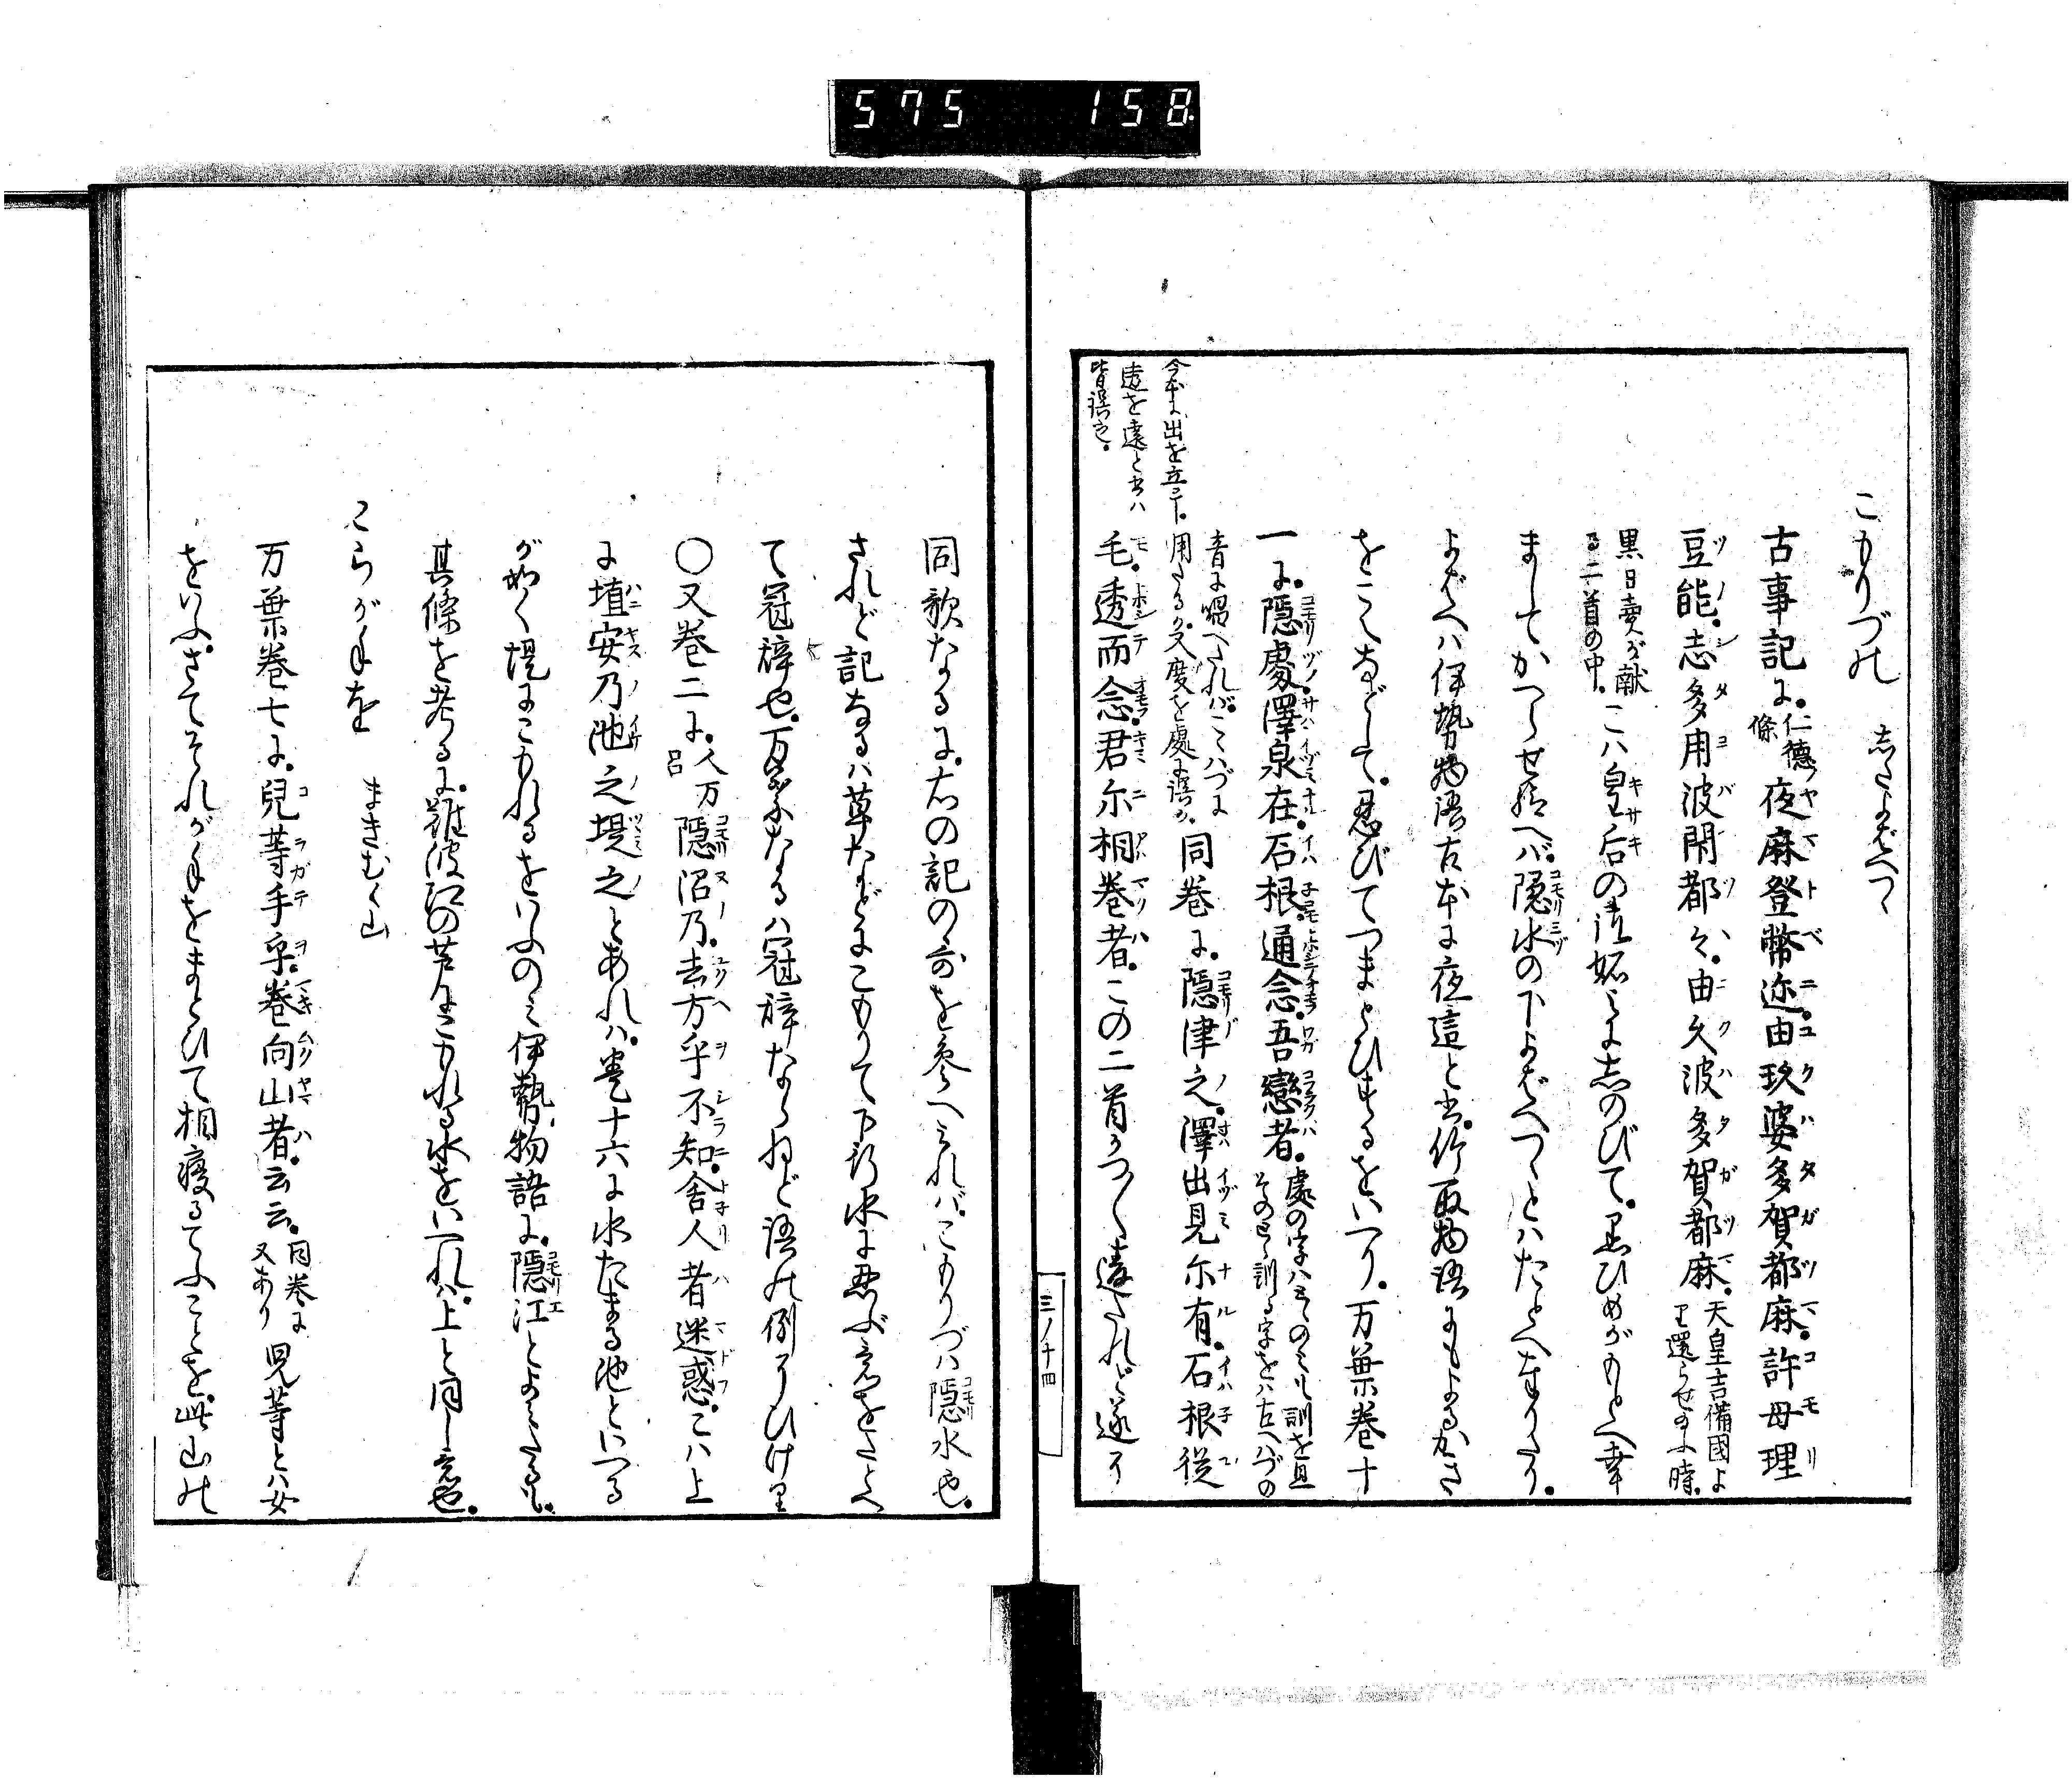 575 158
こもりづの　志たよばへつゝ
古事記に。仁德ノ條夜麻登幣迩。由玖婆多賀都麻。許母理
豆能。志多用波閇都々。由久波多賀都麻。天皇吉備國より還らせ給ふ時。
黒日賣が献る二首の中。こハ皇后の御妬みに志のびて。黒ひめがもとへ幸
ましてかへらせ給へバ。隠水の下よばへつゝとハたとへなり。
よばへハ伊勢物語古本に夜這と書。竹取物語にもよるかき
をこえなどして。忍びてつまとひするをいへり。万葉巻十
一に。隠處澤泉在。石根通念。吾戀者。處の字ハ
音に唱へたれバ。こゝハづに用たるか。又度を處に誤か。同巻に。隠津之。澤出見尓有。石根従
毛。透而念。君尓相巻者。この二首
今本に出を立に。
透を遠と書ハ
皆誤也。
三ノ十四
同歌なるに。右の記の哥を参へみれバ。こもりづハ隠水也。
されど記なるハ草などにこもりて下行水に忍ぶ意をたとへ
て冠辞也。万葉なるハ冠辞ならねど語の例にひけり
〇又巻二に。人万呂隠沼乃。去方乎不知。舎人者迷惑。こハ上
に埴安乃池之堤之とあれハ。巻十六に水たまる池といへる
が如く堤にこもれるをいふのみ伊勢物語に。隠江とよみたるも。
其條を考るに。難波江の芦にこもれる水をいへれハ。上と同し意也。
こらが手を　まきむく山
万葉巻七に。兒等手乎。巻向山者。云云。同巻に又あり兒等とハ女
をいふ。さてそれが手をまとひて相寝るてふことを。此山の